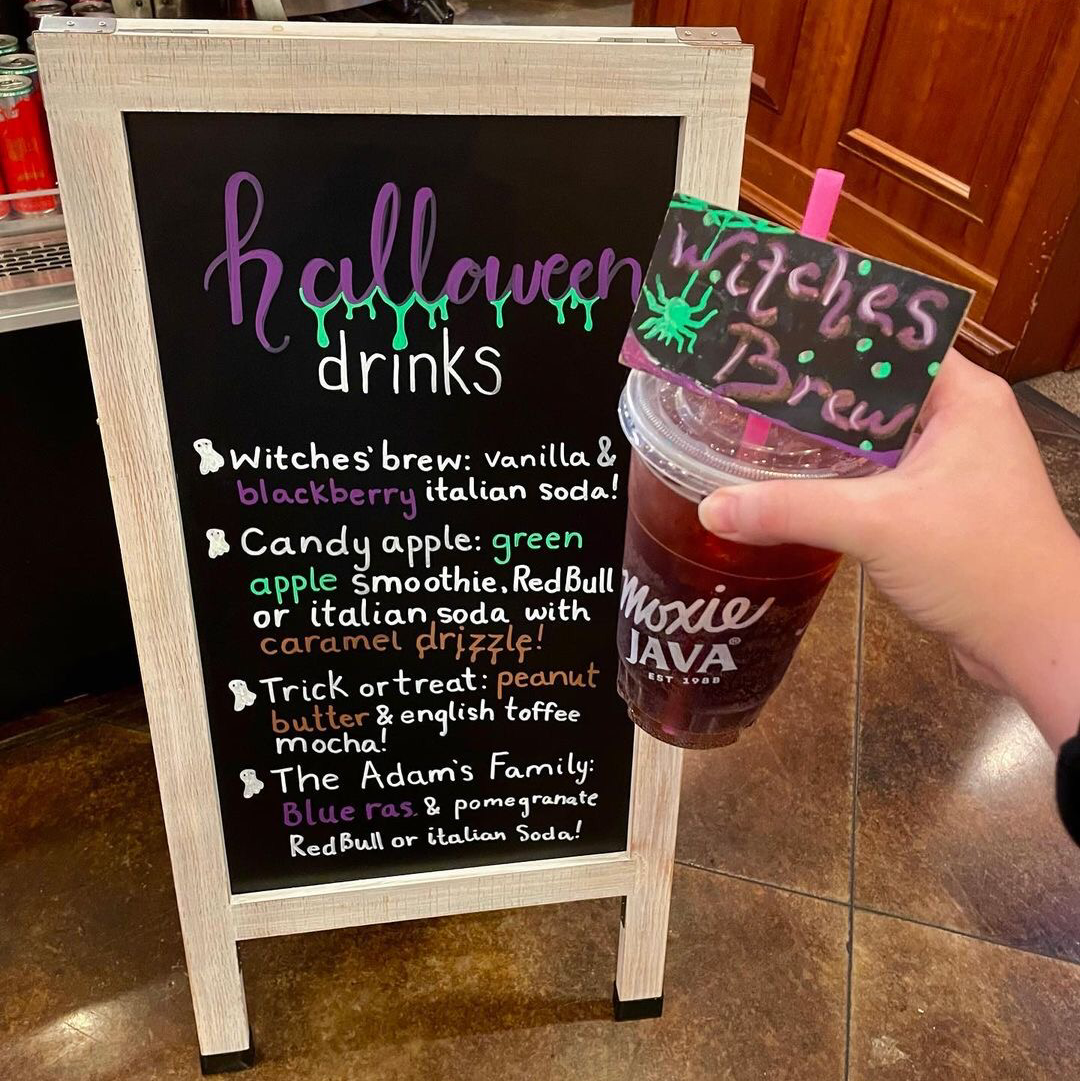 halloween
drinks
Witches' brew: vanilla &
blackberry italian soda!
Candy apple: green
apple smoothie, RedBull
or italian soda with
caramel drizzle!
Trick or treat: peanut
butter & english toffee
mocha!
The Adam's Family:
Blue ras. & pomegranate
RedBull or italian Soda!
Witches
Brew
Moxie
JAVA®
EST 1988